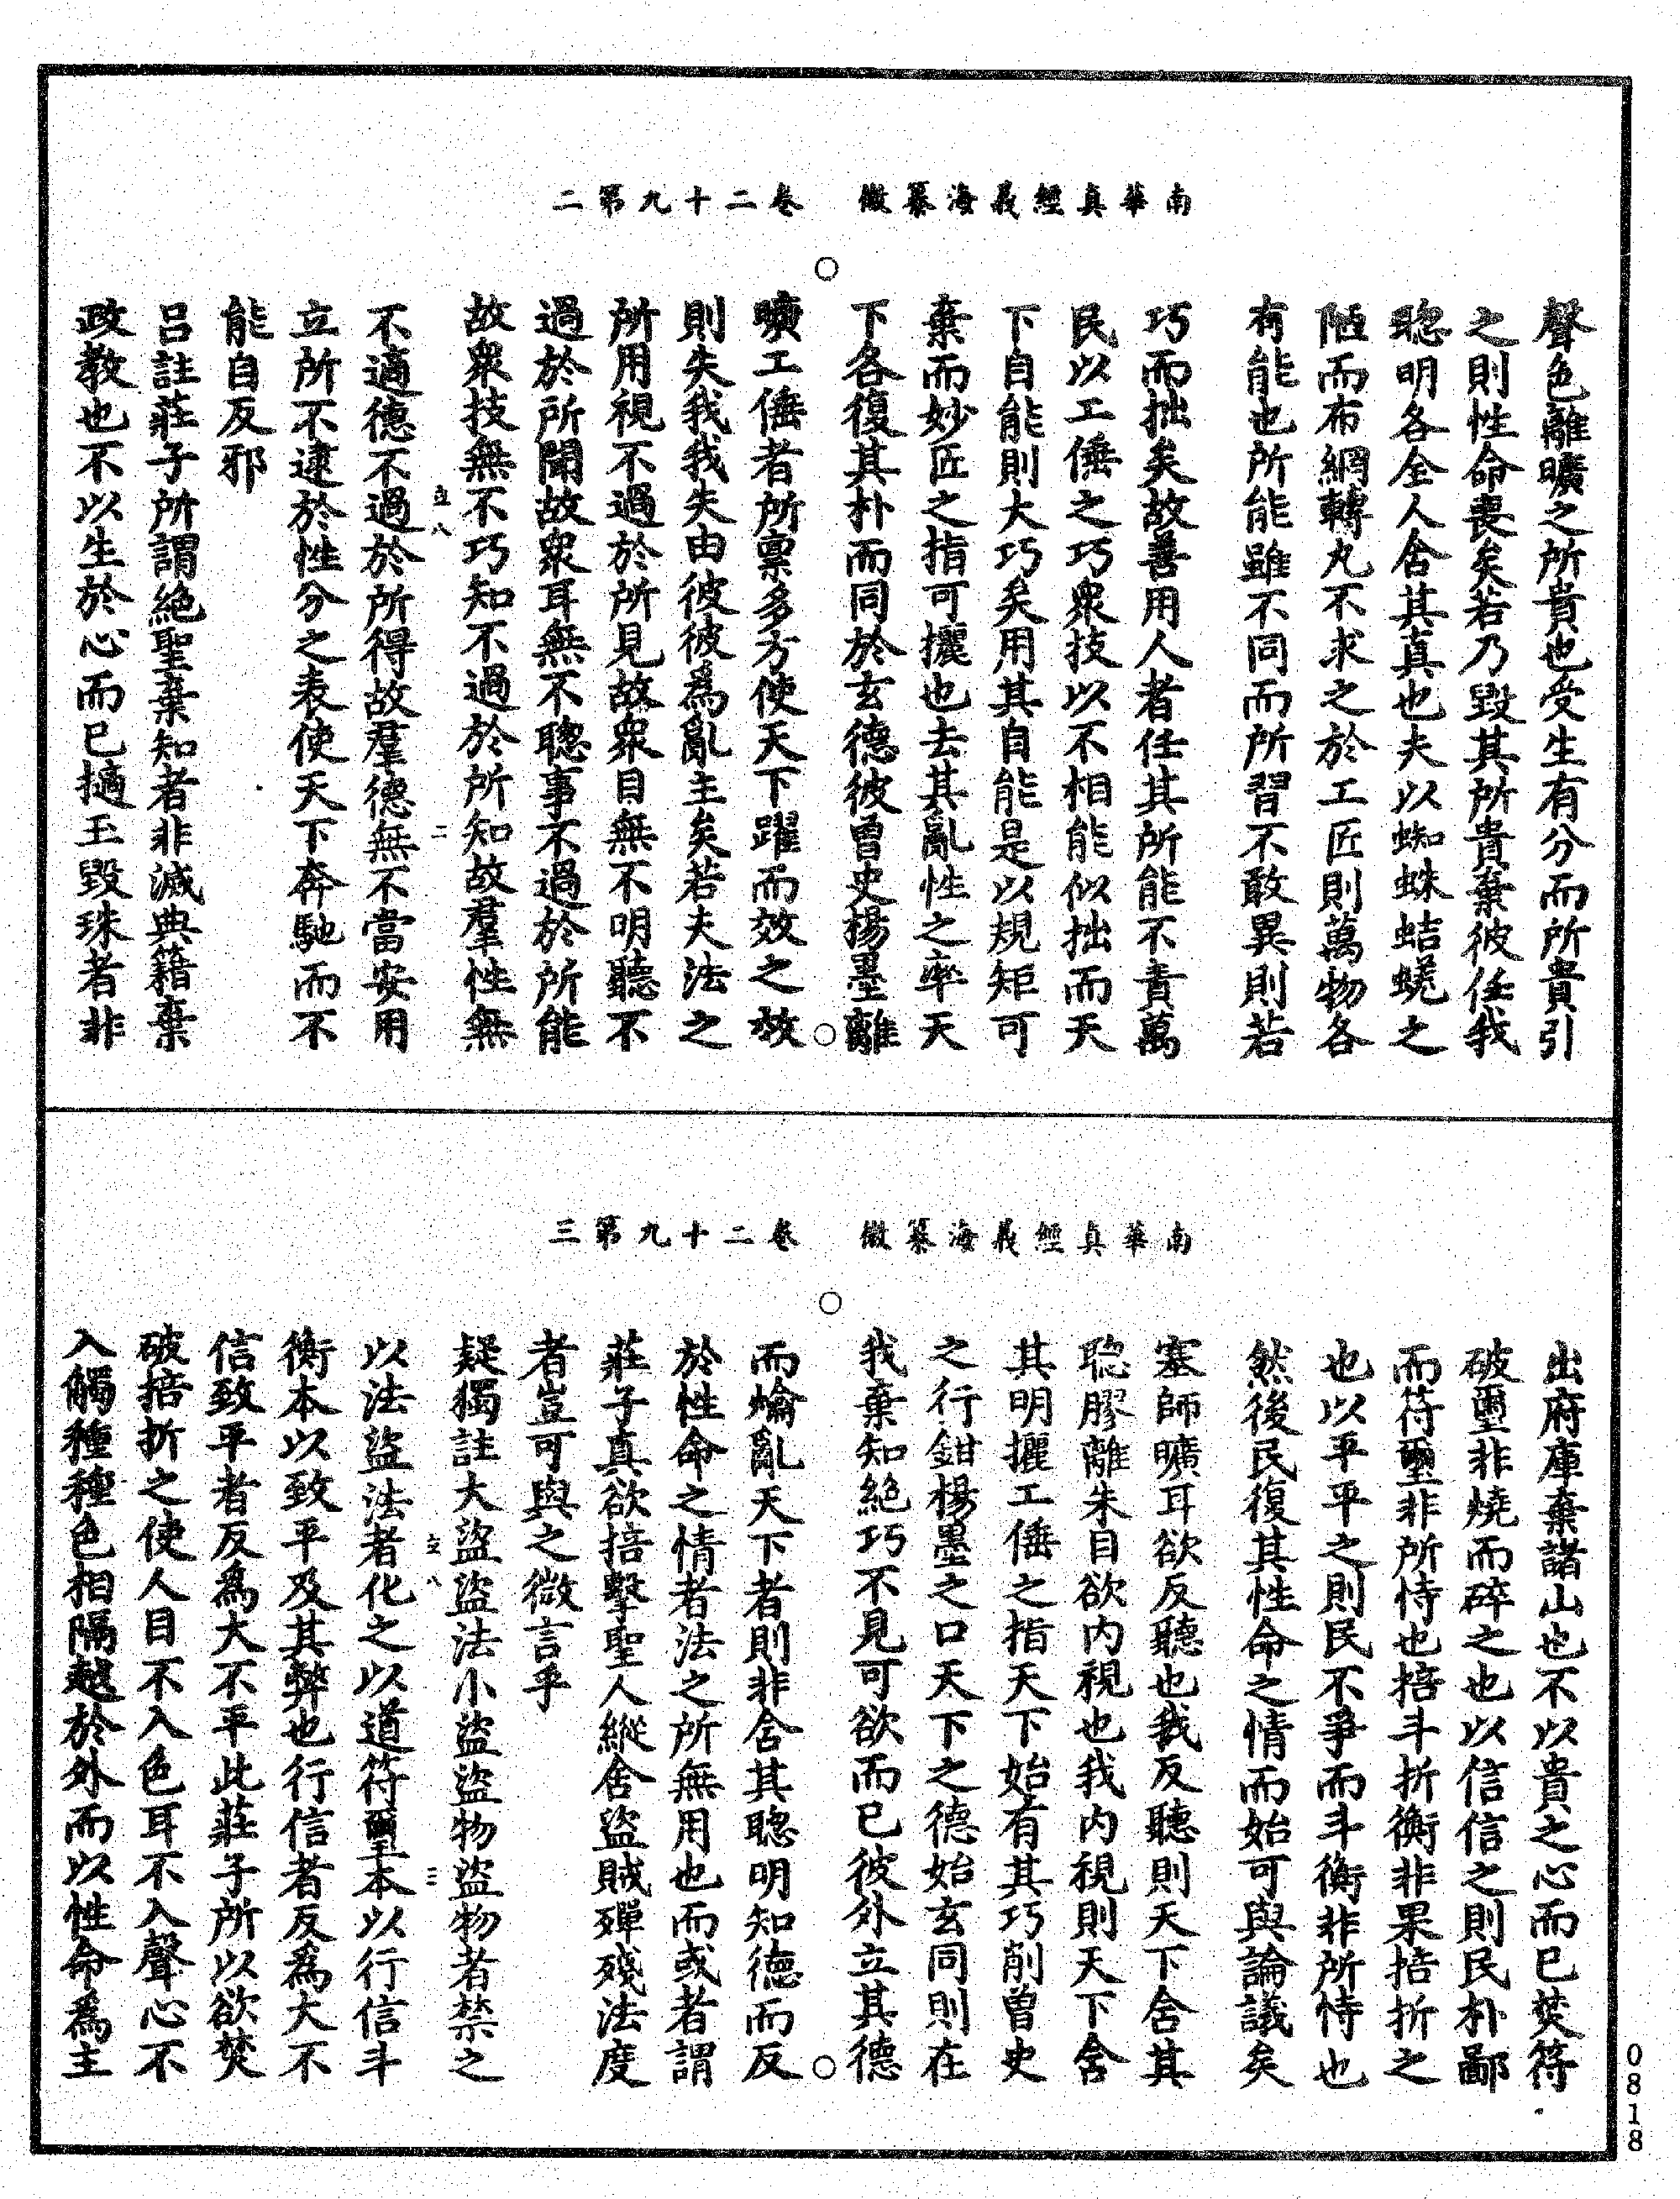 南華真經義海纂微　卷二十九第二
聲色離曠之所貴也受生有分而所貴引
之則性命喪矣若乃毀其所貴棄彼任我
聰明各全人含其真也夫以蜘蛛蛣蜣之
陋而布網轉丸不求之於工匠則萬物各
有能也所能雖不同而所習不敢異則若
巧而拙矣故善用人者任其所能不責萬
民以工倕之巧衆技以不相能似拙而天
下自能則大巧矣用其自能是以規矩可
棄而妙匠之指可攦也去其亂性之率天
下各復其朴而同於玄德彼曾史楊墨離
曠工倕者所禀多方使天下躍而效之故
則失我我失由彼彼爲亂主矣若夫法之
所用視不過於所見故衆目無不明聽不
過於所聞故衆耳無不聰事不過於所能
故衆技無不巧知不過於所知故羣性無
不適德不過於所得故羣德無不當安用
立所不逮於性分之表使天下奔馳而不
能自反邪
呂註莊子所謂絕聖棄知者非滅典籍棄
政教也不以生於心而已擿玉毀珠者非
立八
二
南華真經義海纂微　卷二十九第三
出府庫棄諸山也不以貴之心而已焚符
破璽非燒而碎之也以信信之則民朴鄙
而符璽非所恃也掊斗折衡非果掊折之
也以平平之則民不爭而斗衡非所恃也
然後民復其性命之情而始可與論議矣
塞師曠耳欲反聽也我反聽則天下含其
聰膠離朱目欲内視也我内視則天下含
其明攦工倕之指天下始有其巧削曾史
之行鉗楊墨之口天下之德始玄同則在
我棄知絕巧不見可欲而已彼外立其德
而爚亂天下者則非含其聰明知德而反
於性命之情者法之所無用也而或者謂
莊子真欲掊擊聖人縱舍盜賊殫殘法度
者豈可與之微言乎
疑獨註大盜盜法小盜盜物盜物者禁之
以法盜法者化之以道符璽本以行信斗
衡本以致平及其弊也行信者反爲大不
信致平者反爲大不平此莊子所以欲焚
破掊折之使人目不入色耳不入聲心不
入觸種種色相隔越於外而以性命爲主
立八
三
0818